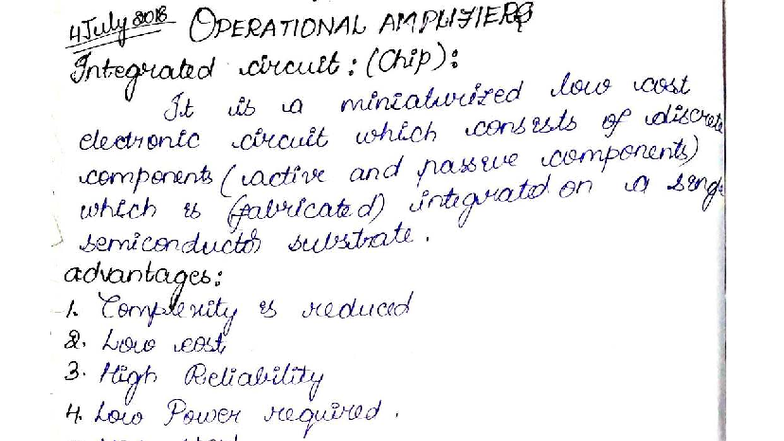 4 July 2018 OPERATIONAL AMPLIFIERS
Integrated circuit : (Chip) :
It is a miniaturized low cost
electronic circuit which consists of discrete
components (active and passive components)
which is (fabricated) integrated on a
semiconductor substrate.
advantages:
1. Complexity is reduced
2. Low cost
3. High Reliability
4. Low Power required.